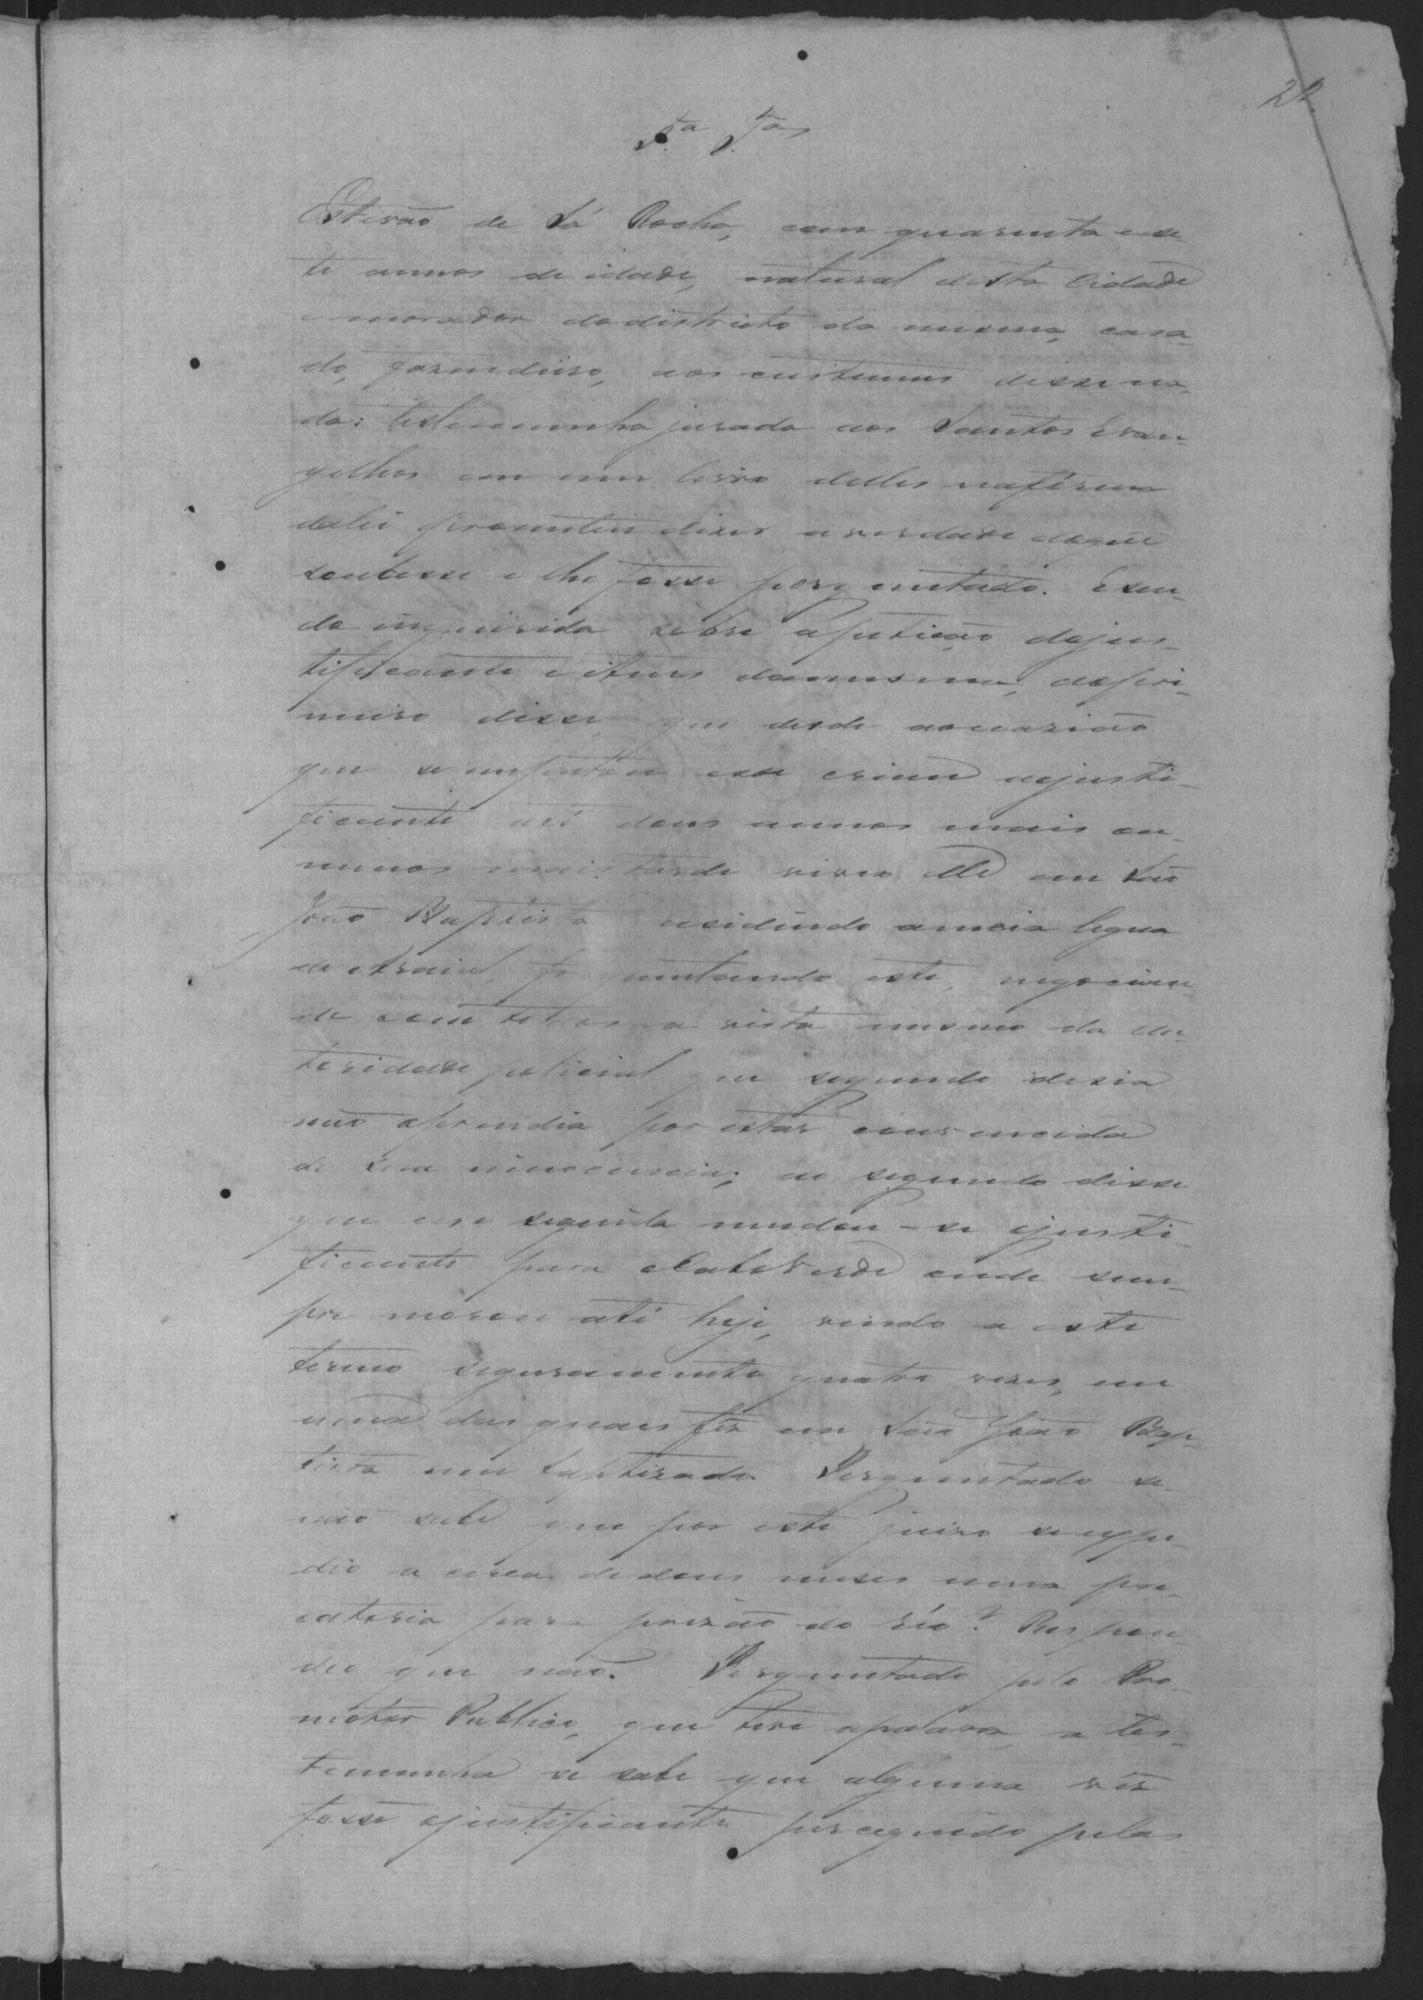 22
5.a T.as
Estevão de Sá Rocha, com quarenta e se-
te annos de idade, natural desta Cidade
e morador do districto da mesma, casa-
do, fazendeiro, aos custumes disse na-
da: testemunha jurada aos Santos Evan-
gelhos em um livro delles na fórma
da lei prometteu dizer a verdade do que
soubesse e lhe fosse perguntado. E sen-
do inquirida sobre a petição do jus-
tificante e itens da mesma, ao pri-
meiro disse que desde a occazião
que se imputou esse crime ao justi-
ficante até dous annos mais ou
menos mais tarde viveo elle em São
João Baptista residindo a meia legua
do Arraial, frequentando este, negocian-
do com todos a vista mesmo da au-
toridade policial que segundo dizia
não o prendia por estar convencida
de sua innocencia; ao segundo disse
que em seguida mudou-se o justi-
ficante para Cato Verde onde sem-
pre morou até hoje, vindo a este
termo seguramente quatro vezes, em
uma das quaes fez em São João Bap-
tista um baptizado. Perguntado se
não sabe que por este juizo se expe-
dio a cerca de dous mezes uma pre-
catoria para prizão do réo? Respon-
deo que não. Perguntado pelo Pro-
motor Publico, que teve a palavra, a tes-
temunha se sabe que alguma vêz
fosse o justificante perseguido pelas